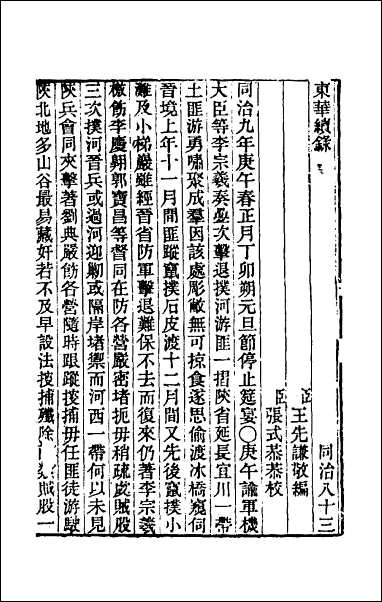 東華續錄 同治八十三
臣王先謙敬編
臣張式恭恭校
同治九年庚午春正月丁卯朔元旦節停止筵宴○庚午諭軍機
大臣等李宗羲奏疊次擊退撲河游匪一摺陝省延長宜川一帶
土匪游勇嘯聚成羣因該處彫敝無可掠食遂思偷渡冰橋窺伺
晉境上年十一月間匪蹤竄撲石皮渡十二月間又先後竄撲小
灘及小梯嚴雖經晉省防軍擊退難保不去而復來仍著李宗羲
檄飭李慶翺郭寶昌等督同在防各營嚴密堵扼毋稍疏虞賊股
三次撲河晉兵或過河迎勦或隔岸堵禦而河西一帶何以未見
陝兵會同夾擊著劉典嚴飭各營隨時跟蹤搜捕毋任匪徒游駛
陝北地多山谷最易藏奸若不及早設法搜捕殲除賊股一